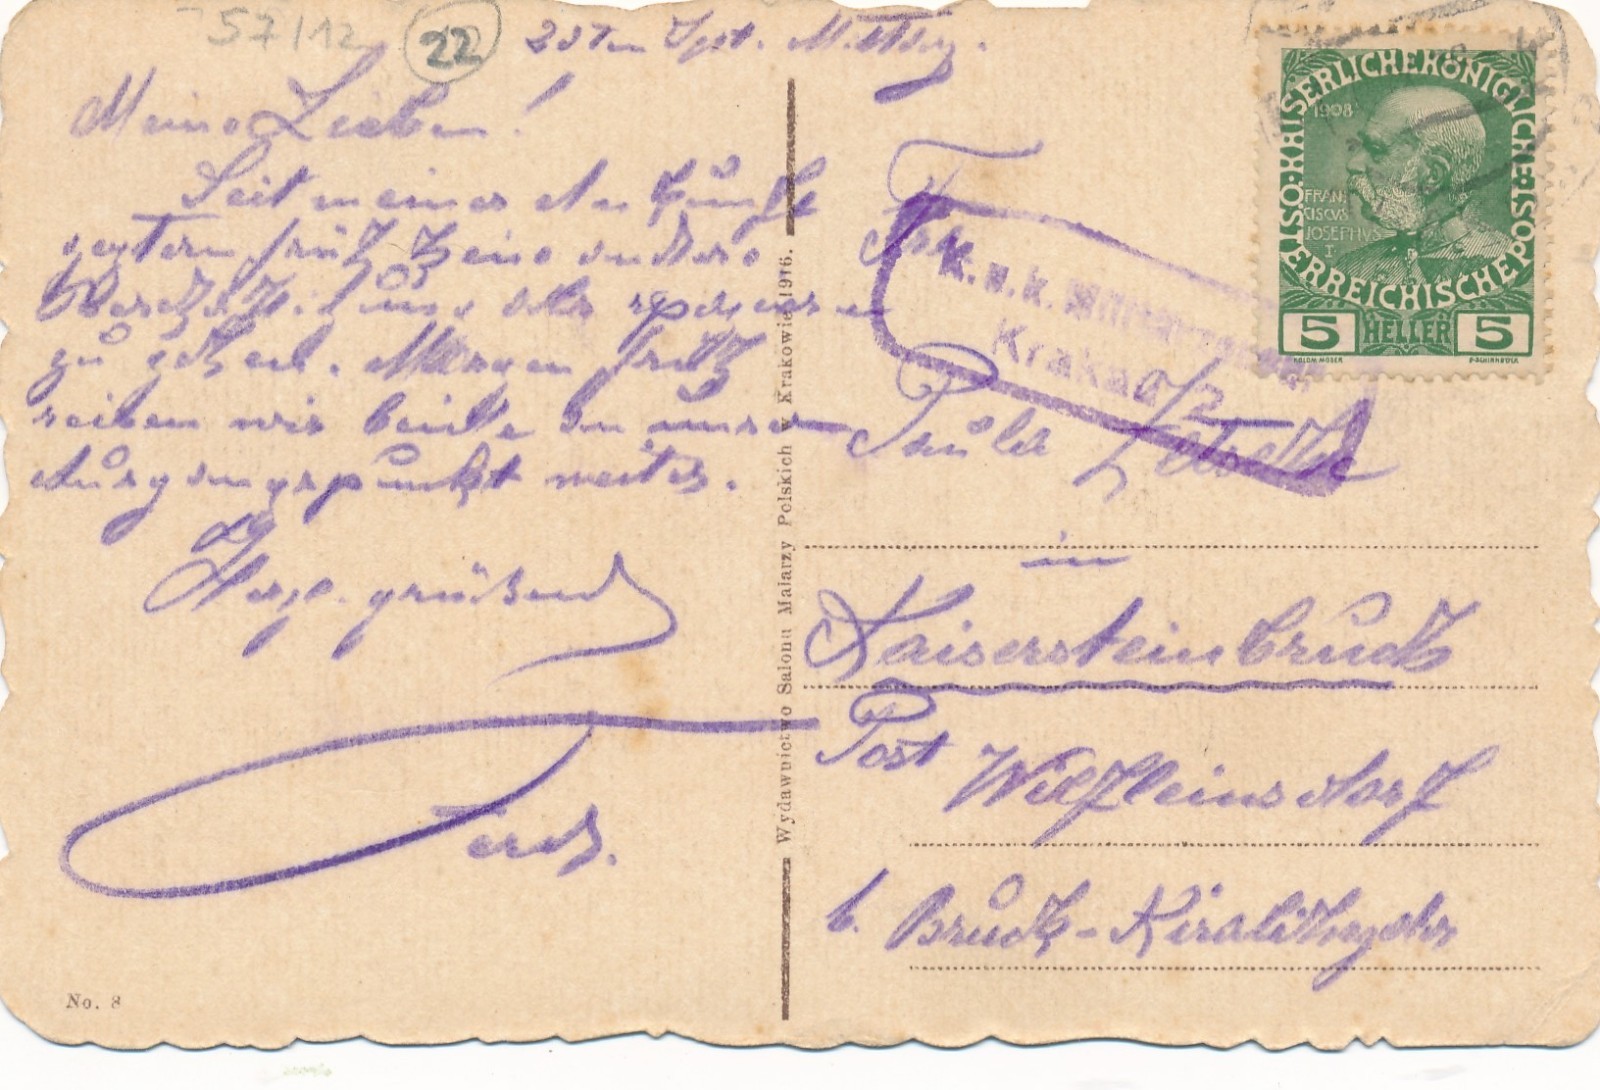 57/12
22
Sept. Mittag.
Meine Lieben!
Seit meiner Ankunft
gestern früh keine andere
zu gehen. Morgen früh
reisen wir heute an unser
Ausgangspunkt weiter.
Herzl. grüßend
Ferd.
No. 8
Wydawnictwo Salonu Malarzy Polskich w Krakowie 1916.
K. u. k.
Krakau
KAISERLICHE KÖNIGLICHE ÖSTERREICHISCHE POST
1908
FRAN
CISCVS
JOSEPHVS
I
5 HELLER 5
KOLOM. MOSER
F. SCHIRNBÖCK
Frl.
Paula
in
Kaisersteinbruch
Post Wilfleinsdorf
b. Bruck-Kiralyhida